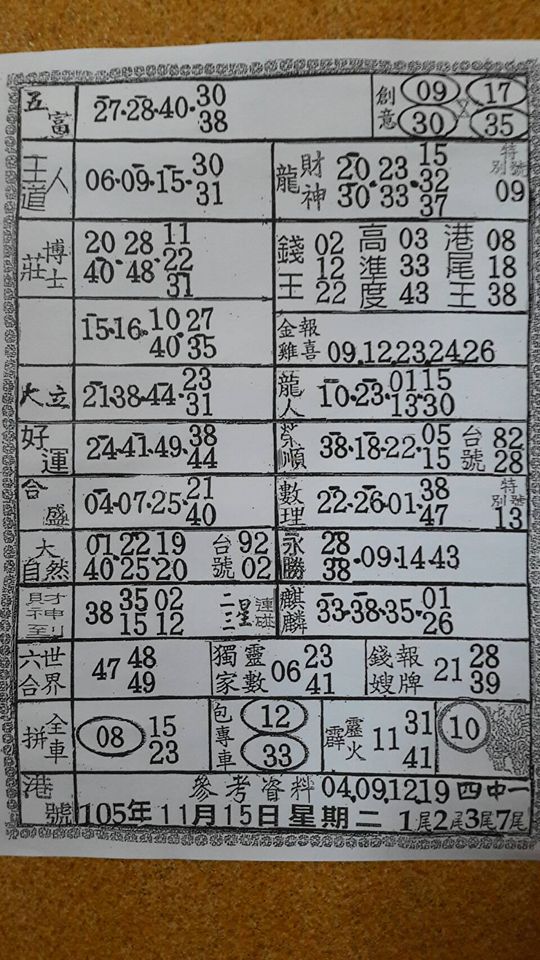 五富 27·28·40·30 38
創意 09 17 30 35
王道人 06·09·15·30 31
龍 財神 20·23·15 32 30·33·37 特別號 09
莊博士 20·28·11 22 40·48·31
錢王 02 12 22 高準度 03 33 43 港尾王 08 18 38
15·16·10·27 40·35
金雞報喜 09.12.23.24.26
大立 21·38·44·23 31
龍人 10·23·01·15 13·30
好運 24·41·49·38 44
榮順 38·18·22·05 15 台號 82 28
合盛 04·07·25·21 40
數理 22·26·01·38 47 特別號 13
大自然 01·22·19 40·25·20 台號 92 02
永勝 28 38·09·14·43
財神到 38 35 02 15 12 二三星連碰
麒麟 33·38·35·01 26
六合世界 47 48 49
獨家靈數 06 23 41
錢嫂報牌 21 28 39
全車拼 08 15 23
包專車 12 33
霹靂火 11 31 41
10
港號 參考資料 04.09.12.19 四中一
105年11月15日星期二 1尾2尾3尾7尾